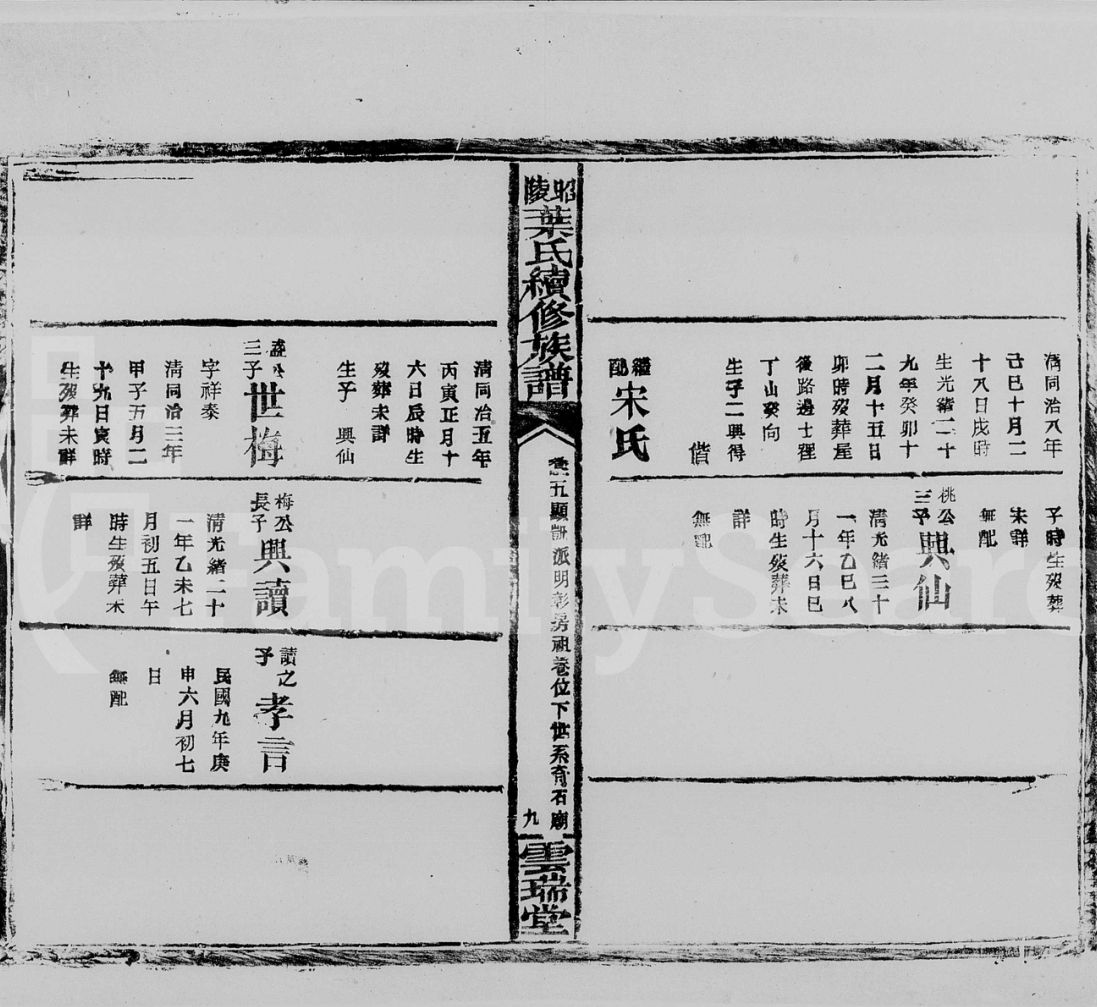 清同治八年
己巳十月二
十八日戌時
生光緒二十
九年癸卯十
二月十五日
卯時歿葬屋
後路邊土裡
丁山癸向
生子二興得
偕
繼配宋氏
子時生歿葬
未詳
無配
桃公三子興仙
清光緒三十
一年乙巳八
月十六日巳
時生歿葬未
詳
無配
昭陵葉氏續修族譜
卷五顯凱派明彰房祖卷位下世系育石廟
九
雲瑞堂
清同治五年
丙寅正月十
六日辰時生
歿葬未詳
生子 興仙
三子世梅
字祥泰
清同治三年
甲子五月二
十九日寅時
生歿葬未詳
梅公長子興讀
清光緒二十
一年乙未七
月初五日午
時生歿葬未
詳
讀之子孝言
民國九年庚
申六月初七
日
無配
FamilySearch